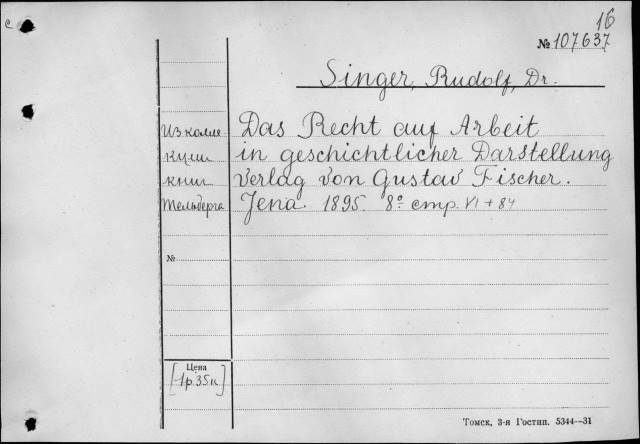 с
16
№ 107637
Singer, Rudolf, Dr.
Из колле Das Recht auf Arbeit
кции in geschichtlicher Darstellung
книг Verlag von Gustav Fischer.
Тельберга Jena. 1895. 8° стр. VI + 84
№
Цена
[1р. 35к]
Томск, 3-я Гостип. 5344—31